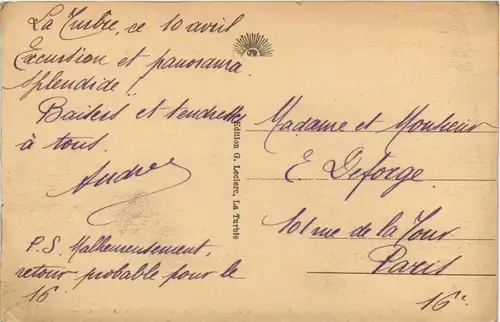 La Turbie, ce 10 avril
Excursion et panorama
splendide.
Baisers et tendresses
à tous.
André
P.S. Malheureusement,
retour probable pour le
16
Edition G. Leclerc, La Turbie
Madame et Monsieur
E Deforge
101 rue de la Tour
Paris
16e